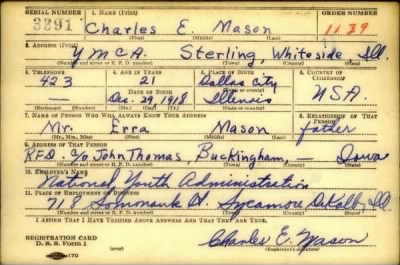 SERIAL NUMBER 1. NAME (Print) ORDER NUMBER
3291 Charles E. Mason 1139
2. ADDRESS (Print)
YMCA. Sterling, Whiteside Ill.
(Number and street or R. F. D. number) (Town) (County) (State)
3. TELEPHONE 4. AGE IN YEARS 5. PLACE OF BIRTH 6. COUNTRY OF CITIZENSHIP
423 21 Dallas City
DATE OF BIRTH (Town or county)
Dec. 29, 1918 Illinois USA.
(Exchange) (Number) (Mo.) (Day) (Yr.) (State or country)
7. NAME OF PERSON WHO WILL ALWAYS KNOW YOUR ADDRESS 8. RELATIONSHIP OF THAT PERSON
Mr. Erra Mason father
(Mr., Mrs., Miss) (First) (Middle) (Last)
9. ADDRESS OF THAT PERSON
RFD c/o John Thomas, Buckingham, — Iowa
(Number and street or R. F. D. number) (Town) (County) (State)
10. EMPLOYER'S NAME
National Youth Administration
11. PLACE OF EMPLOYMENT OR BUSINESS
718 Somonauk St. Sycamore DeKalb Ill
(Number and street or R. F. D. number) (Town) (County) (State)
I AFFIRM THAT I HAVE VERIFIED ABOVE ANSWERS AND THAT THEY ARE TRUE.
REGISTRATION CARD
D. S. S. Form 1 Charles E. Mason
(Registrant's signature)